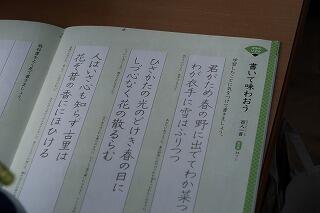 書いて味わおう
百人一首
君がため春の野に出でてわか菜つ
わが衣手に雪はふりつつ
ひさかたの光のどけき春の日に
しづ心なく花の散るらむ
人はいさ心も知らず古里は
花ぞ昔の香ににほひける